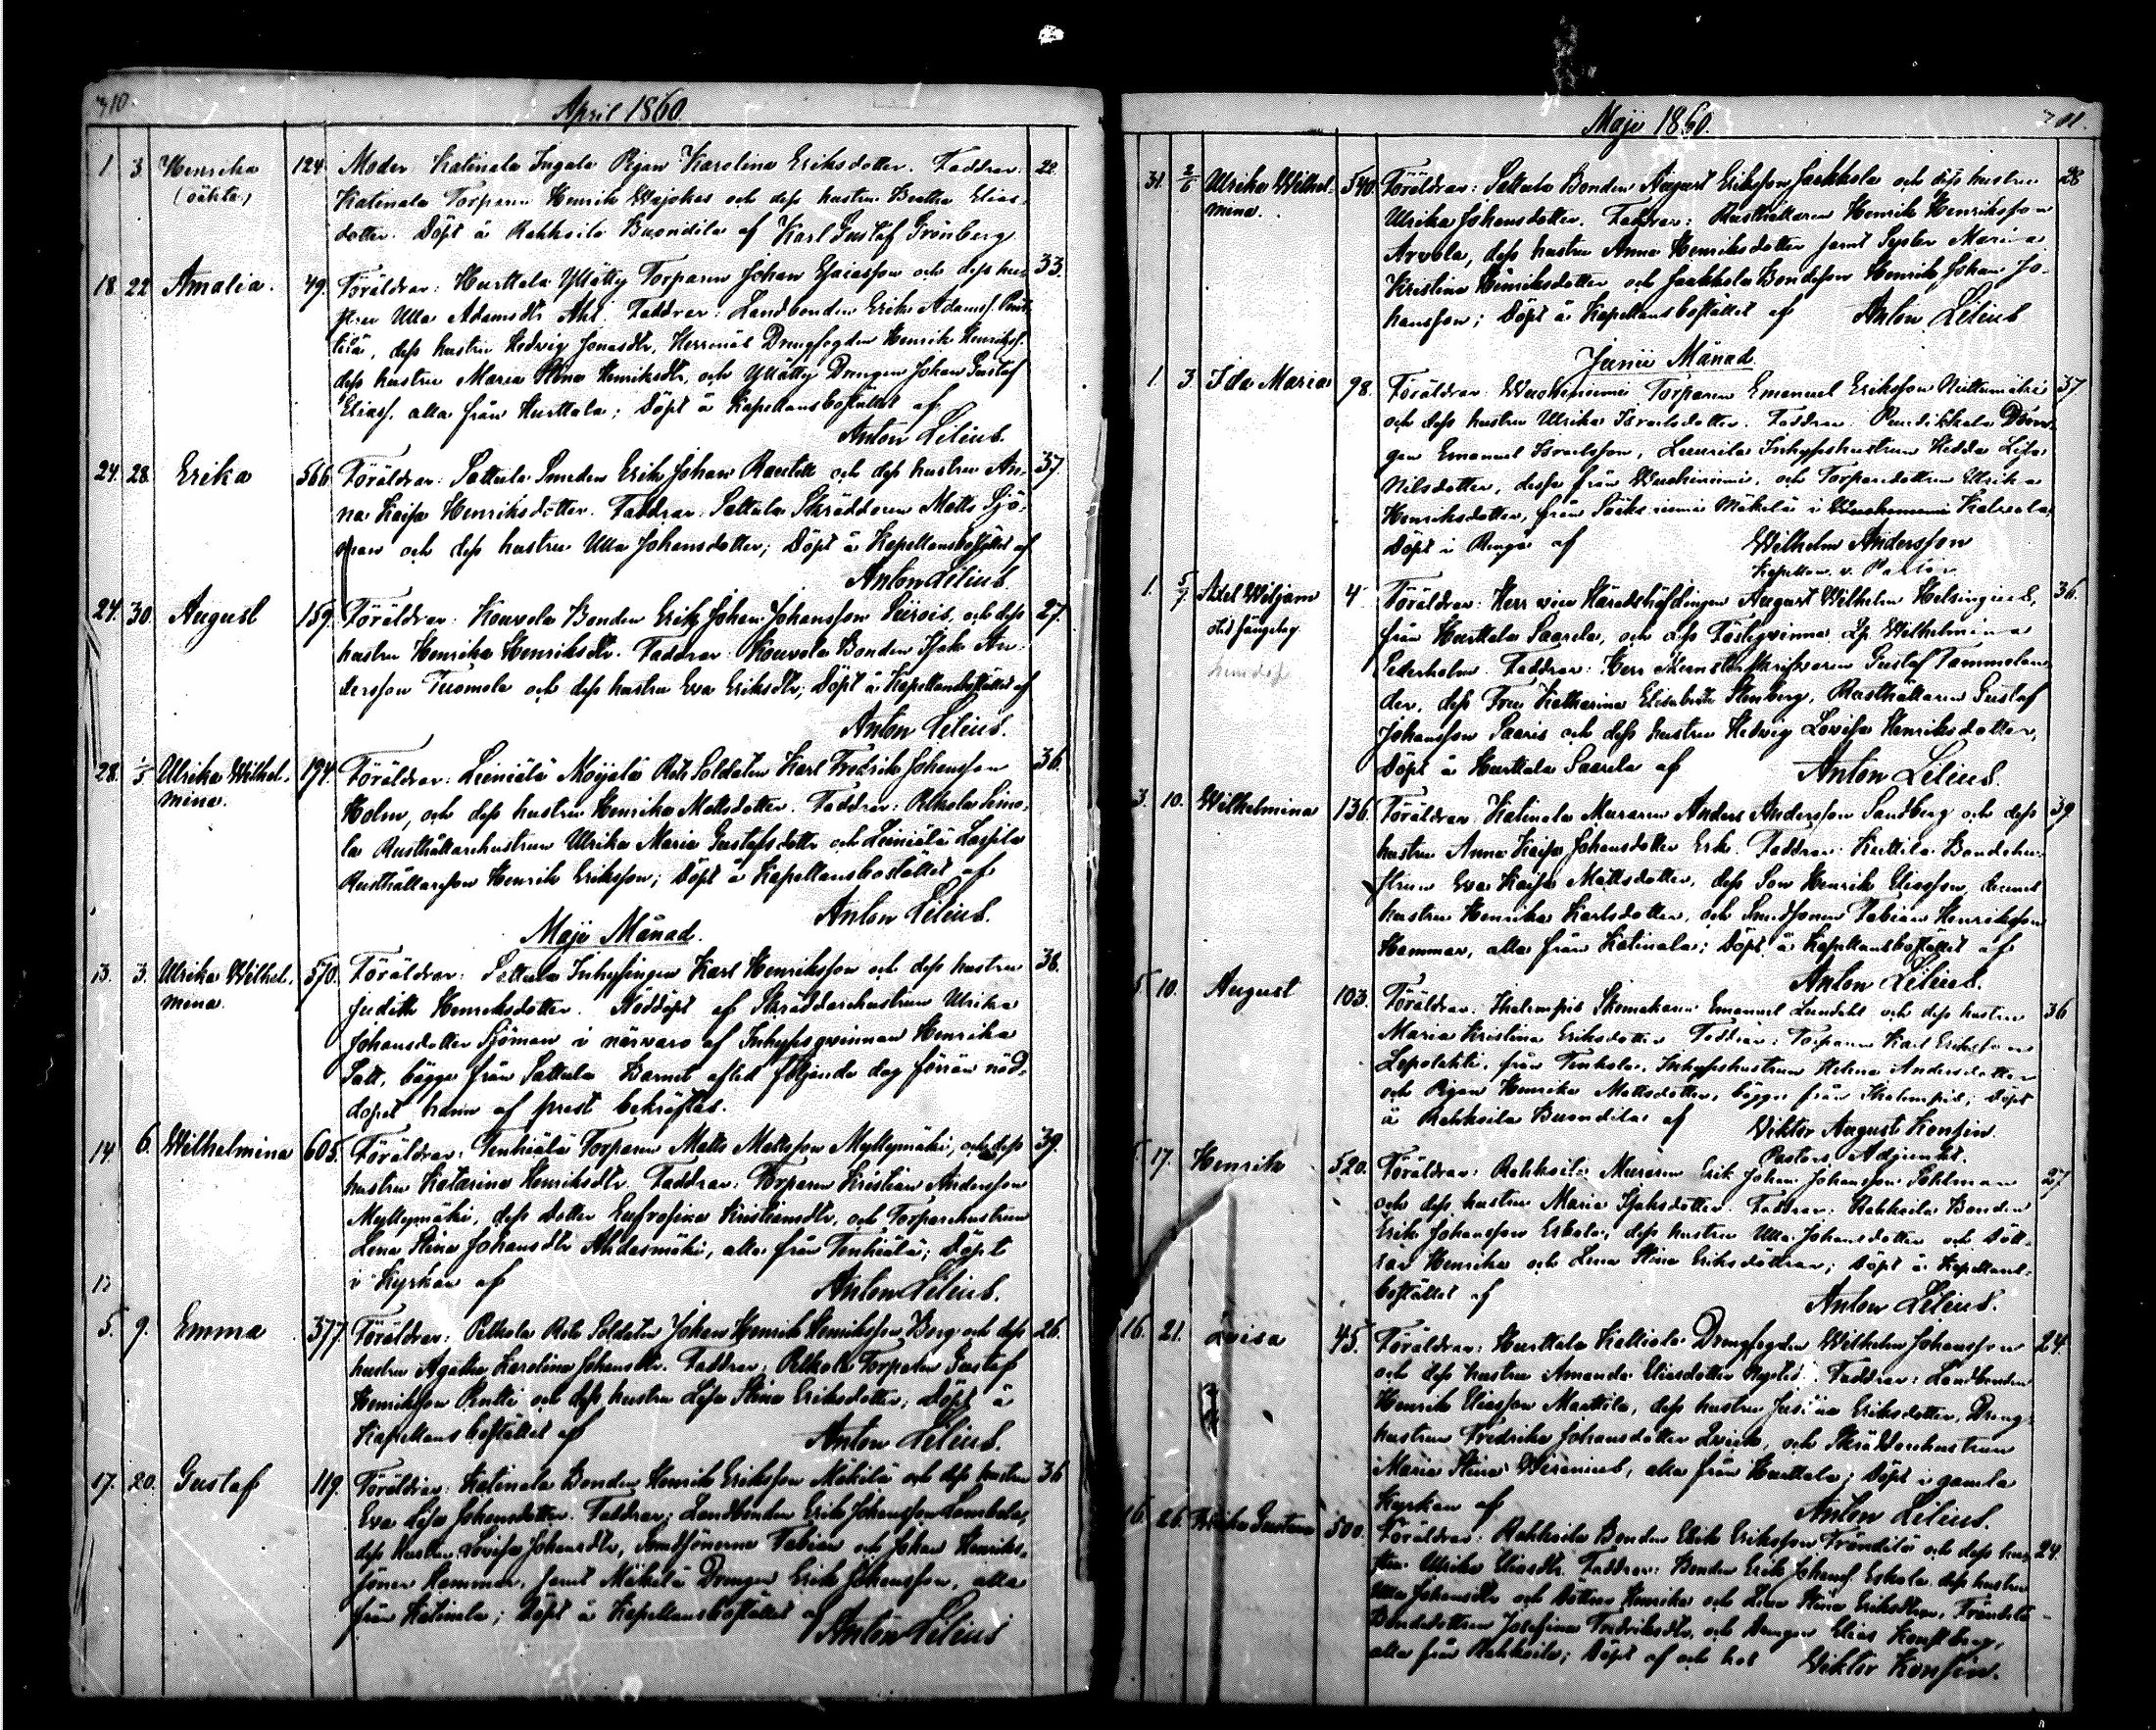 April 1860.
1 3 Henrika 124. Moder Katinala Ingala Pigan Karolina Eriksdotter. Faddrar: 22.
(oäkta) Katinala Torparen Henrik Wajokas och dess hustru Beatha Elias-
dotter. Döpt å Rahkoila Buondila af Karl Gustaf Grönberg.
18. 22 Amalia. 49. Föräldrar: Hurttala Yllätty Torparen Johan Esaiasson och dess hu- 33.
stru Ulla Adamsdr Ahl. Faddrar: Landbonden Erik Adamss. Pent-
tilä, dess hustru Hedvig Jonasdr, Herrnäs Drengfogden Henrik Henrikss.
dess hustru Maria Stina Henriksdr, och Yllätty Drengen Johan Gustaf
Eliass. alla från Hurttala; Döpt å Kapellansbostället af
Anton Lilius.
24. 28. Erika 566 Föräldrar: Sattula Smeden Erik Johan Rautell och dess hustru An- 37
na Kaisa Henriksdotter. Faddrar: Sattula Skräddaren Matts Sjö-
man och dess hustru Ulla Johansdotter; Döpt å Kapellansbostället af
Anton Lilius.
24. 30. August 159. Föräldrar: Kouvola Bonden Erik Johan Johansson Siirois, och dess 27.
hustru Henrika Henriksdr. Faddrar: Kouvola Bonden Isak An-
dersson Tuomola och dess hustru Eva Eriksdr; Döpt å Kapellansbostället af
Anton Lilius.
28. 1/5 Ulrika Wilhel- 194. Föräldrar: Lieniälä Moijala Rote Soldaten Karl Fredrik Johansson 36.
mina. Holm, och dess hustru Henrika Mattsdotter. Faddrar: Pelkola Simo-
la Rusthållarehustrun Ulrika Maria Gustafsdotter och Lieniälä Laipila
Rusthållaresson Henrik Eriksson; Döpt å Kapellansbostället af
Anton Lilius.
Maji Månad.
13. 3. Ulrika Wilhel- 570. Föräldrar: Sattula Inhysingen Karl Henriksson och dess hustru 38.
mina. Judith Henriksdotter. Nöddöpt af Skräddarehustrun Ulrika
Johansdotter Sjöman i närvaro af Inhysesqvinnan Henrika
Salt, bägge från Sattula. Barnet afled följande dag förrän nöd-
dopet hann af prest bekräftas.
14. 6. Wilhelmina 605. Föräldrar: Tenhiälä Torparen Matts Mattsson Myllymäki, och dess 39.
hustru Katarina Henriksdr. Faddrar: Torparen Kristian Andersson
Myllymäki, dess dotter Eufrosina Kristiansdr, och Torparehustrun
Lena Stina Johansdr Ahdasmäki, alla från Tenhiälä; Döpt
i Kyrkan af Anton Lilius.
5. 9. Emma 377. Föräldrar: Pelkola Rote Soldaten Johan Henrik Henriksson Borg och dess 26.
hustru Agatha Karolina Johansdr. Faddrar: Pelkola Torparen Gustaf
Henriksson Pentti och dess hustru Lisa Stina Eriksdotter; Döpt å
Kapellansbostället af Anton Lilius.
17. 20. Gustaf 119. Föräldrar: Katinala Bonden Henrik Eriksson Mäkilä och dess hustru 36
Eva Lisa Johansdotter. Faddrar: Landbonden Erik Johansson Lambola,
dess hustru Lovisa Johansdr, Smedsönerna Fabian och Johan Henriks-
söner Hammar, samt Mäkelä Drengen Erik Johansson, alla
från Katinala; Döpt å Kapellansbostället af
Anton Lilius
Maji 1860.
31. 2/6 Ulrika Wilhel- 540. Föräldrar: Sattula Bonden August Eriksson Jaakkola och dess hustru 28
mina. Ulrika Johansdotter. Faddrar: Rusthållaren Henrik Henriksson
Arvola, dess hustru Anna Henriksdotter samt Syster Maria
Kristina Henriksdotter och Jaakkola Bondesson Henrik Johan Jo-
hansson; Döpt å Kapellansbostället af Anton Lilius
Junii Månad.
1. 3. Ida Maria 98. Föräldrar: Wuohiniemi Torparen Emanuel Eriksson Niittumäki 37
och dess hustru Ulrika Israelsdotter. Faddrar: Pundikkala Dren-
gen Emanuel Israelsson, Laurila Inhyseshustrun Hedda Lisa
Nilsdotter, dessa från Wuohiniemi, och Torparedottren Ulrika
Henriksdotter, från Sääksniemi Mäkelä i Kalvola,
Döpt i Ringå af Wilhelm Andersson
Kapellan. v. Pastor.
1. 5/7 Axel Wiljam 4 Föräldrar: Herr vice Häradshöfdingen August Wilhelm Helsingius, 36.
från Hurttala Saarela, och dess Fästeqvinna Wilhelmina
Cederholm. Faddrar: Herr Gustaf Tammelan-
der, dess Fru Katharina Elisabeth Stenberg, Rusthållaren Gustaf
Johansson Saaris och dess hustru Hedvig Lovisa Henriksdotter,
Döpt å Hurttala Saarela af Anton Lilius.
3. 10. Wilhelmina 136. Föräldrar: Katinala Muraren Anders Andersson Sandberg och dess 39.
hustru Anna Kaisa Johansdotter Erk. Faddrar: Kuttila Bondehu-
strun Eva Kaisa Mattsdotter, dess Son Henrik Eliasson, dennes
hustru Henrika Karlsdotter, och Smedssonen Fabian Henriksson
Hammar, alla från Katinala; Döpt å Kapellansbostället af
Anton Lilius.
5. 10. August 103. Föräldrar: Ihalempis Skomakaren Emanuel Lundahl och dess hustru 36
Maria Kristina Eriksdotter. Faddrar: Torparen Karl Eriksson
Lepolahti, från Tenhola, Inhyseshustrun Helena Andersdotter
och Pigan Henrika Mattsdotter, bägge från Ihalempis; Döpt
å Rahkoila Buondila af Viktor August Konsin.
Pastors Adjunkt.
17. Henrik 520. Föräldrar: Rahkoila Muraren Erik Johan Johansson Sohlman 27
och dess hustru Maria Isaksdotter. Faddrar: Rahkoila Bonden
Erik Johansson Eskola, dess hustru Ulla Johansdotter och Dött-
rar Henrika och Lena Stina Eriksdöttrar; Döpt å Kapellans-
bostället af Anton Lilius.
16. 21. Lovisa 45. Föräldrar: Hurttala Kalliola Drengfogden Wilhelm Johansson 24.
och dess hustru Amanda Eliasdotter Nysted. Faddrar: Landbonden
Henrik Eliasson Marttila, dess hustru Justina Eriksdotter, Dreng-
hustrun Fredrika Johansdotter Qvick, och Skräddarehustrun
Maria Stina Wirenius, alla från Hurttala; Döpt i gamla
Kyrkan af Anton Lilius.
16. 26. 500. Föräldrar: Rahkoila Bonden Erik Eriksson Fränditä och dess hu- 24.
stru Ulrika Eliasdr. Faddrar: Bonden Erik Johanss. Eskola dess hustru
Ulla Johansdr och döttrar Henrika och Lena Stina Eriksdtrar, Fränditä
Bondedottren Josefina Fredriksdr, och Drengen Elias Konstberg,
alla från Rahkoila; Döpt af och hos Viktor Konsin.